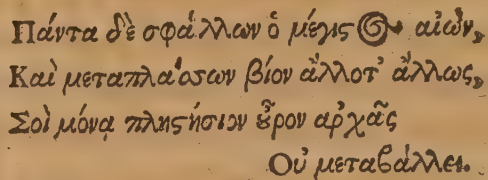 Πάντα δὲ σφάλλων ὁ μέγιϛος αἰών,
Καὶ μεταπλάοσων βίον ἄλλοτ' ἄλλως,
Σοὶ μόνᾳ πληϛήσιον ȣ̃ρον αρχᾶς
Οὐ μεταβάλλει.